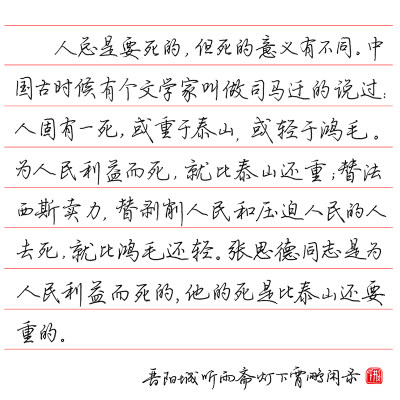 人总是要死的，但死的意义有不同。中
国古时候有个文学家叫做司马迁的说过：
人固有一死，或重于泰山，或轻于鸿毛。
为人民利益而死，就比泰山还重；替法
西斯卖力，替剥削人民和压迫人民的人
去死，就比鸿毛还轻。张思德同志是为
人民利益而死的，他的死是比泰山还要
重的。
岳阳城听雨斋灯下霄鹏闲录